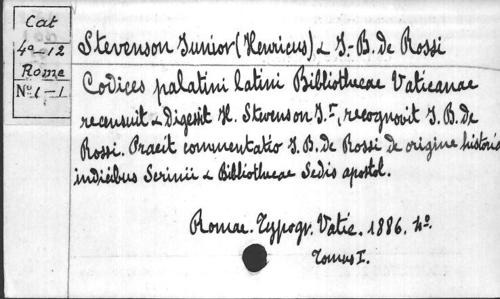 Cat
4º-12
Rome
Nº 1-1
Stevenson Junior (Henricus) & J.-B. de Rossi
Codices palatini latini Bibliothecae Vaticanae
recensuit & digessit H. Stevenson Jr, recognovit J. B. de
Rossi. Praeit commentatio J. B. de Rossi de origine historia
indicibus Scrinii & Bibliothecae Sedis apostol.
Romae. Typogr. Vatic. 1886. 4º.
Tomus I.